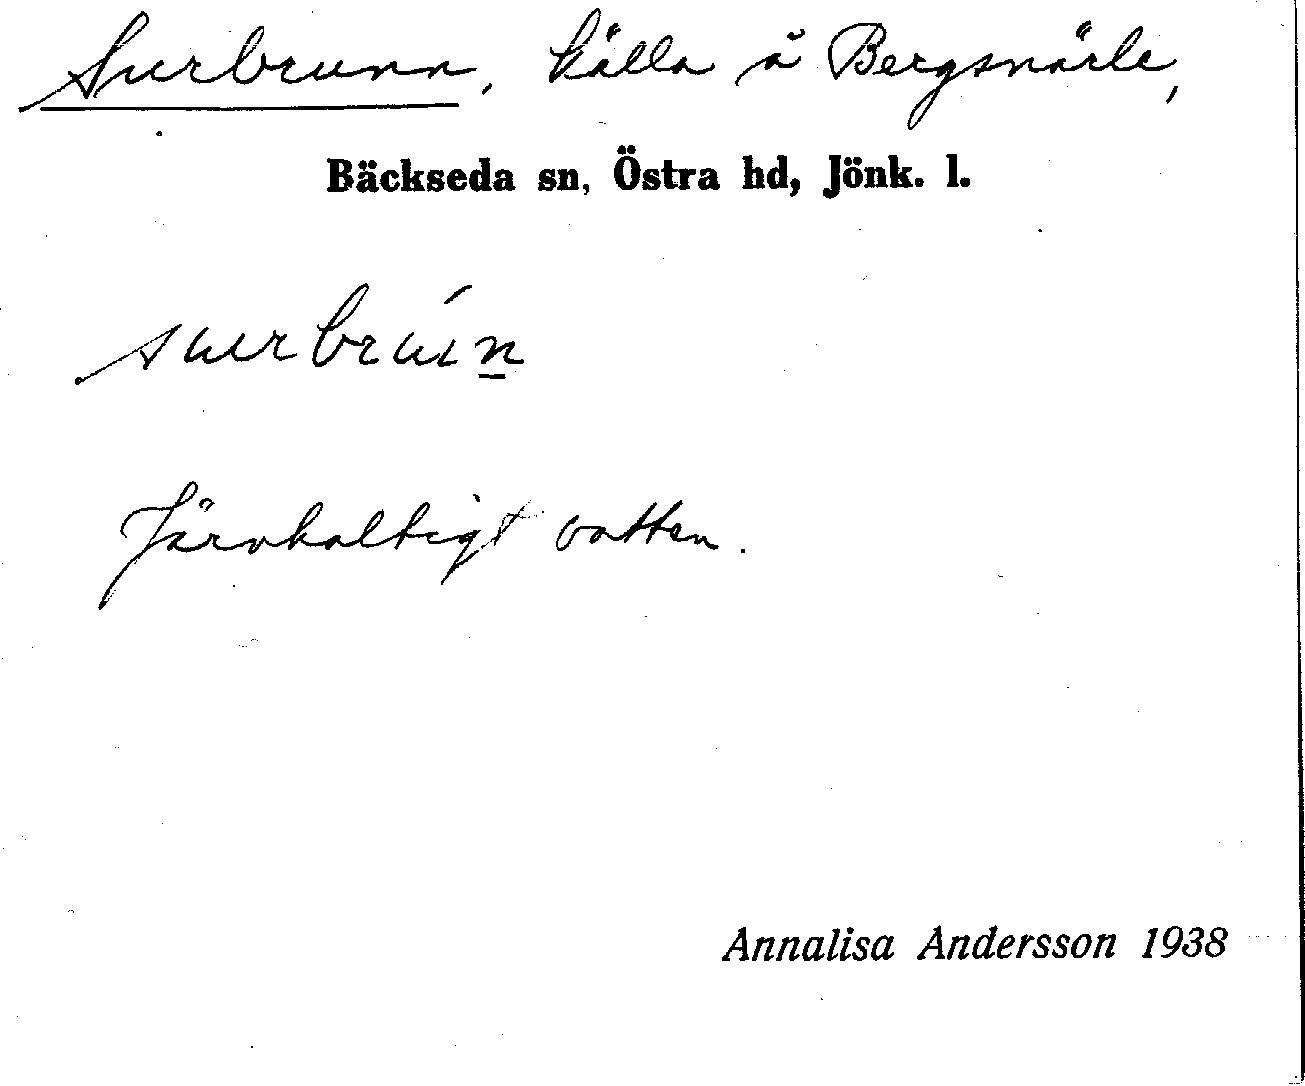 Surbrunn, källa å Bergsnärle,
Bäckseda sn, Östra hd, Jönk. l.
Järnhaltigt vatten.
Annalisa Andersson 1938